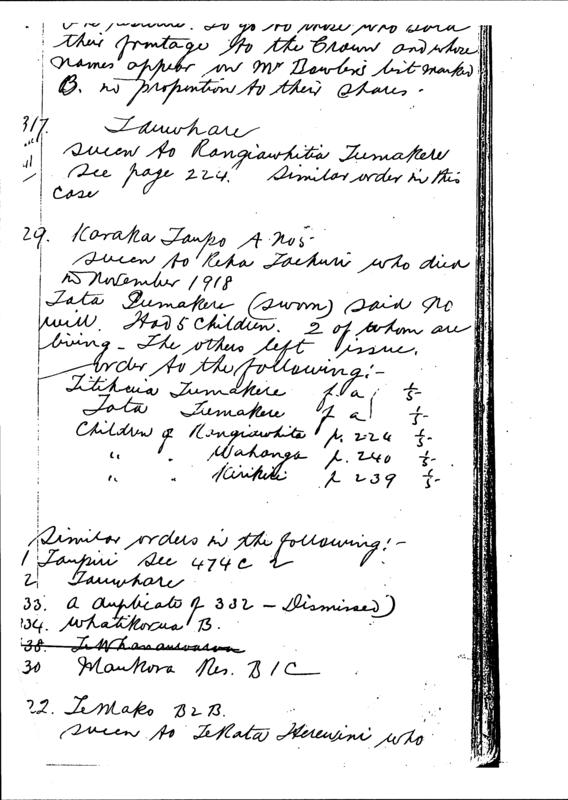 to go to those who
their frontage to the Crown and whose
names appear in Mr Bowler's list marked
B. in proportion to their shares.
317. Tauwhare
succn to Rangiawhitia Tumakere
See page 224. Similar order in this
case
29. Karaka Taupo A No 5
succn to Reha Taehuri who died
in November 1918
Tata Tumakere (sworn) said no
will. Had 5 children. 2 of whom are
living - The others left issue.
order to the following:-
Titihuia Tumakere f. a 1/5
Tata Tumakere f a 1/5
Children of Rangiawhita p. 224 1/5
" " Wahanga p. 240 1/5
" " Kirikiri p 239 1/5
Similar orders in the following:-
1 Taupiri See 474C 2
2 Tauwhare
33. a duplicate of 332 - Dismissed)
34. Whatikorua B.
38.
30 Maukora Res. B1C
22. Te Mako B2B.
succn to Te Rata Herewini who